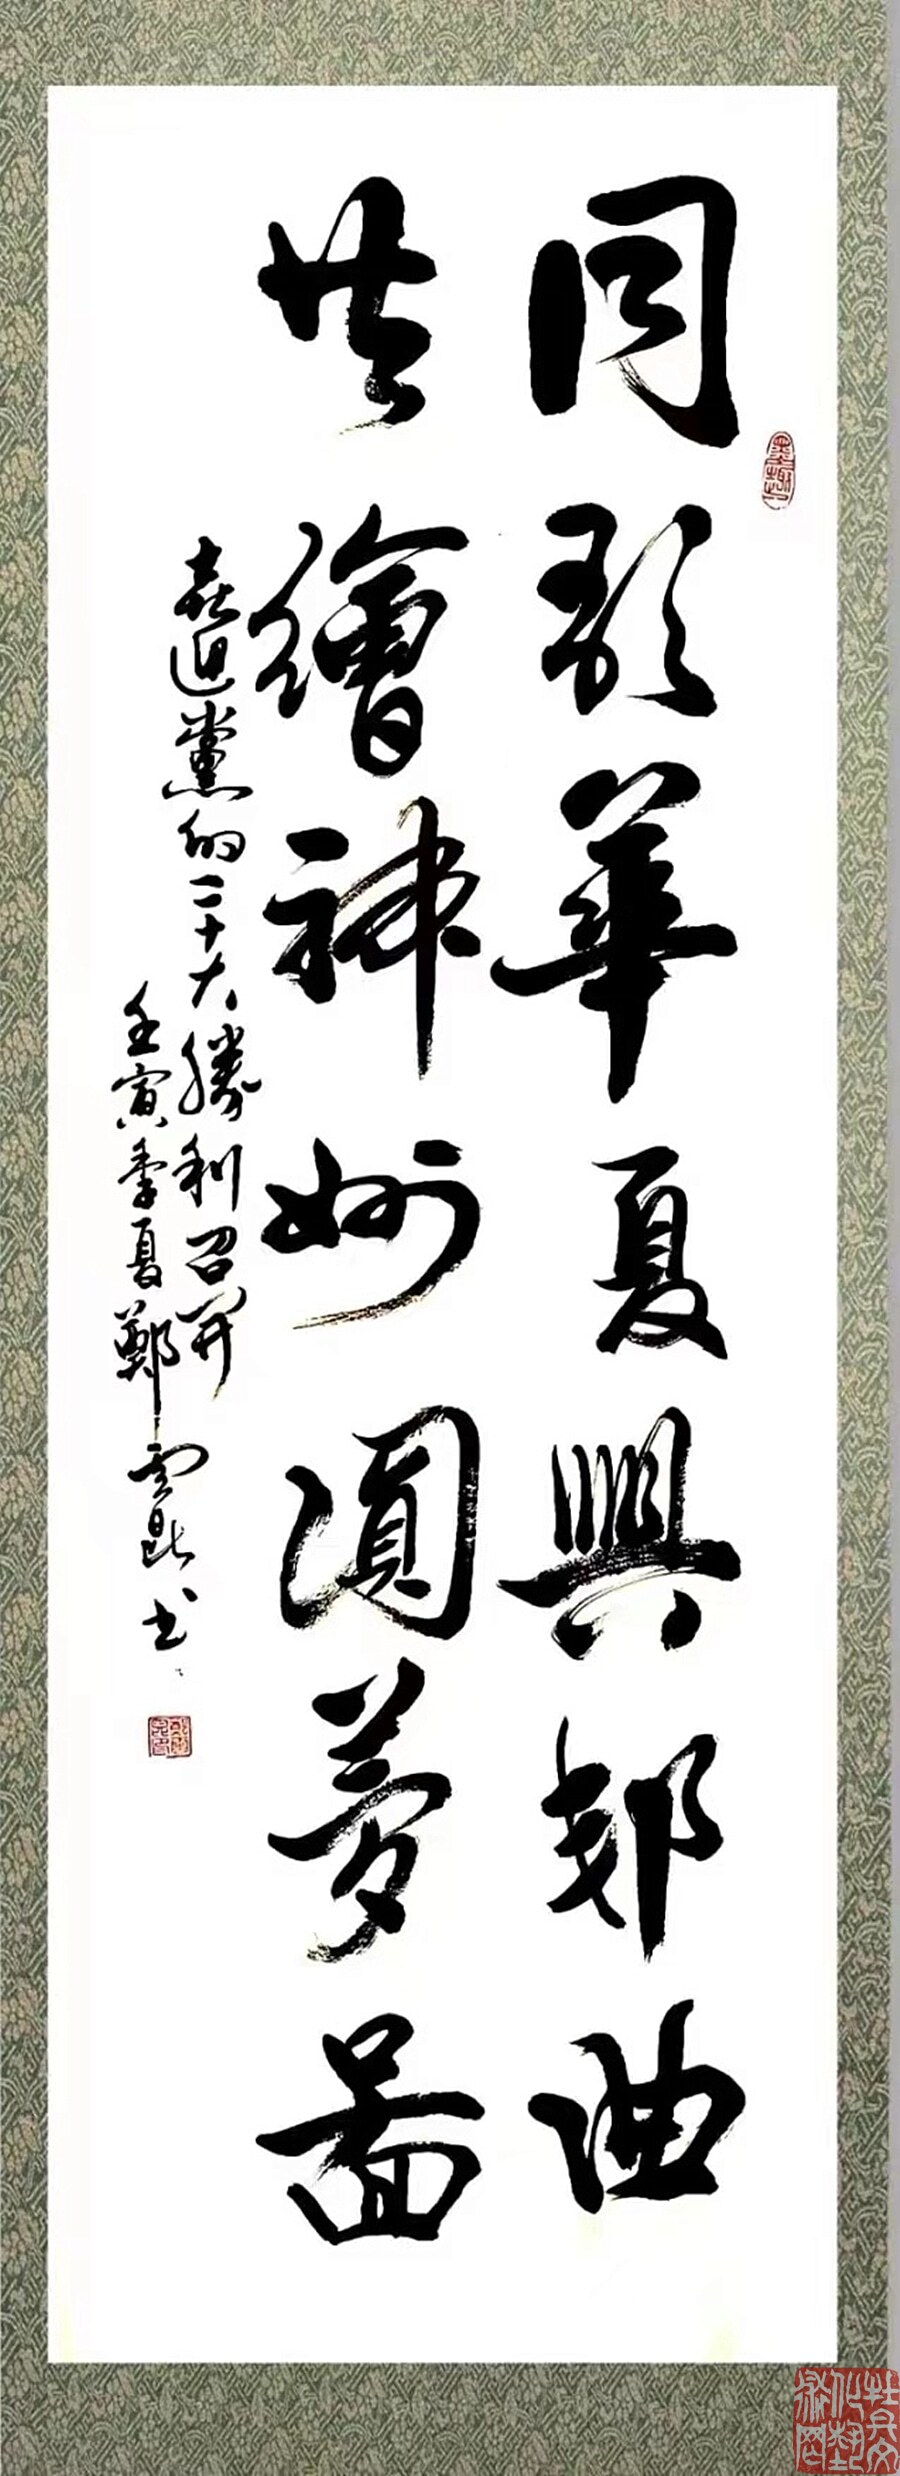 同歌華夏興邦曲
共繪神州圓夢圖
喜迎黨的二十大勝利召開
壬寅季夏鄭雲昆书
墨趣